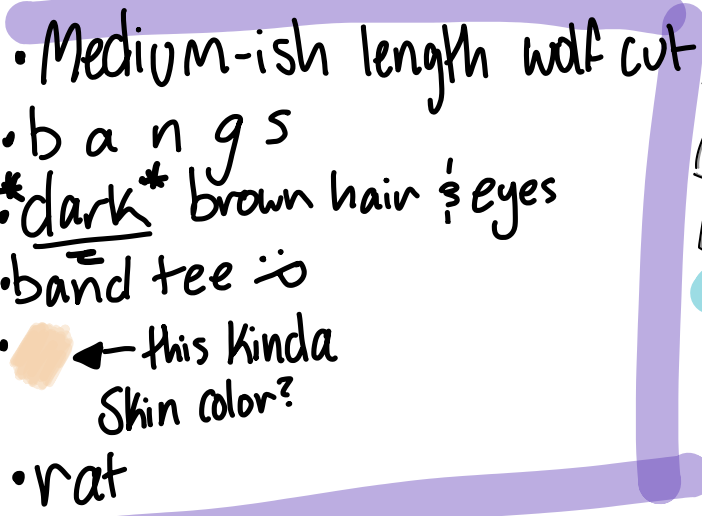 • Medium-ish length wolf cut
• b a n g s
• *dark* brown hair & eyes
• band tee :P
• ← this kinda
skin color?
• rat